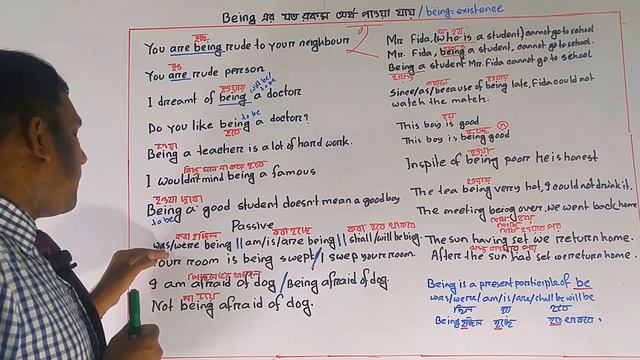 Being এর যত রকমের অর্থ পাওয়া যায় / being=existence
হচ্ছ
You are being rude to your neighbour
হও
You are rude person.
হওয়ার will be to be
I dreamt of being a doctor
to be
Do you like being a doctor?
হতে
হওয়া
Being a teacher is a lot of hard work.
I wouldn't mind being a famous
হওয়া দ্বারা
Being a good student doesn't mean a good boy
to be
Passive
করা হচ্ছিল করা হচ্ছে করা হতে থাকবে
was/were being || am/is/are being || shall/will be being.
Your room is being swept / I swep your room.
I am afraid of dog / Being afraid of dog.
না হয়ে
Not being afraid of dog.
2
যে হয়
Mr. Fida, (who is a student) cannot go to school
Mr. Fida, being a student, cannot go to school.
Being a student Mr. Fida cannot go to school
হওয়ার
Since/as/because of being late, Fida could not
watch the match.
হয়
This boy is good
This boy is being good
হওয়া
Inspile of being poor he is honest
হওয়ায়
The tea being very hot, I could not drink it.
The meeting being over, we went back home
The sun having set we return home.
After the sun had set we return home.
Being is a present participle of be
was/were / am/is/are / shall be will be
Being হচ্ছিল হচ্ছে হতে থাকবে.